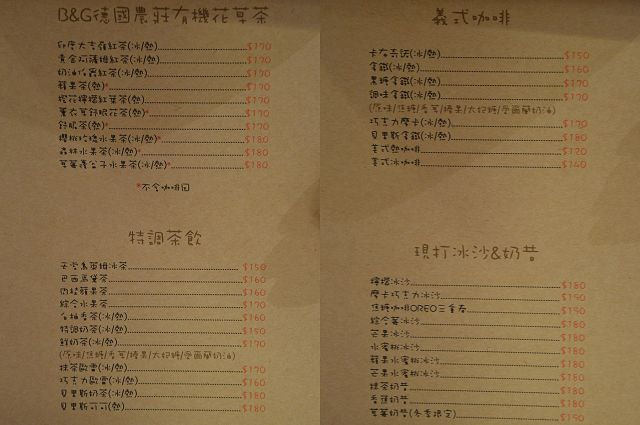 B&G德國農莊有機花草茶
印度大吉嶺紅茶(冰/熱) $170
黃金阿薩姆紅茶(冰/熱) $170
奶油伯爵紅茶(冰/熱) $170
蘋果茶(熱)* $170
櫻花檸檬紅葉茶(熱) $170
薰衣草舒眠花茶(熱)* $170
舒肌茶(熱)* $170
櫻桃玫瑰水果茶(冰/熱)* $180
森林水果茶(冰/熱)* $180
草莓義公子水果茶(冰/熱)* $180
*不含咖啡因
特調茶飲
$150
巴西瑪黛茶 $160
蘋果茶 $160
綜合水果茶 $170
柚香茶(冰/熱) $160
特調奶茶(冰/熱) $150
鮮奶茶(冰/熱) $170
(原味/焦糖/香草/榛果/太妃糖/愛爾蘭奶油)
抹茶歐蕾(冰/熱) $170
巧克力歐蕾(冰/熱) $160
貝里斯奶茶(冰/熱) $180
貝里斯可可(熱) $180
義式咖啡
卡布奇諾(冰/熱) $150
拿鐵(冰/熱) $160
黑糖拿鐵(冰/熱) $170
調味拿鐵(冰/熱) $170
(原味/焦糖/香草/榛果/太妃糖/愛爾蘭奶油)
巧克力摩卡(冰/熱) $170
貝里斯拿鐵(冰/熱) $180
美式熱咖啡 $120
美式冰咖啡 $140
現打冰沙&奶昔
檸檬冰沙 $180
摩卡巧克力冰沙 $150
焦糖咖啡OREO三重奏 $150
綜合莓冰沙 $180
芒果冰沙 $180
水蜜桃冰沙 $180
蘋果水蜜桃冰沙 $180
芒果水蜜桃冰沙 $180
抹茶奶昔 $180
香蕉奶昔 $180
草莓奶昔(冬季限定) $150